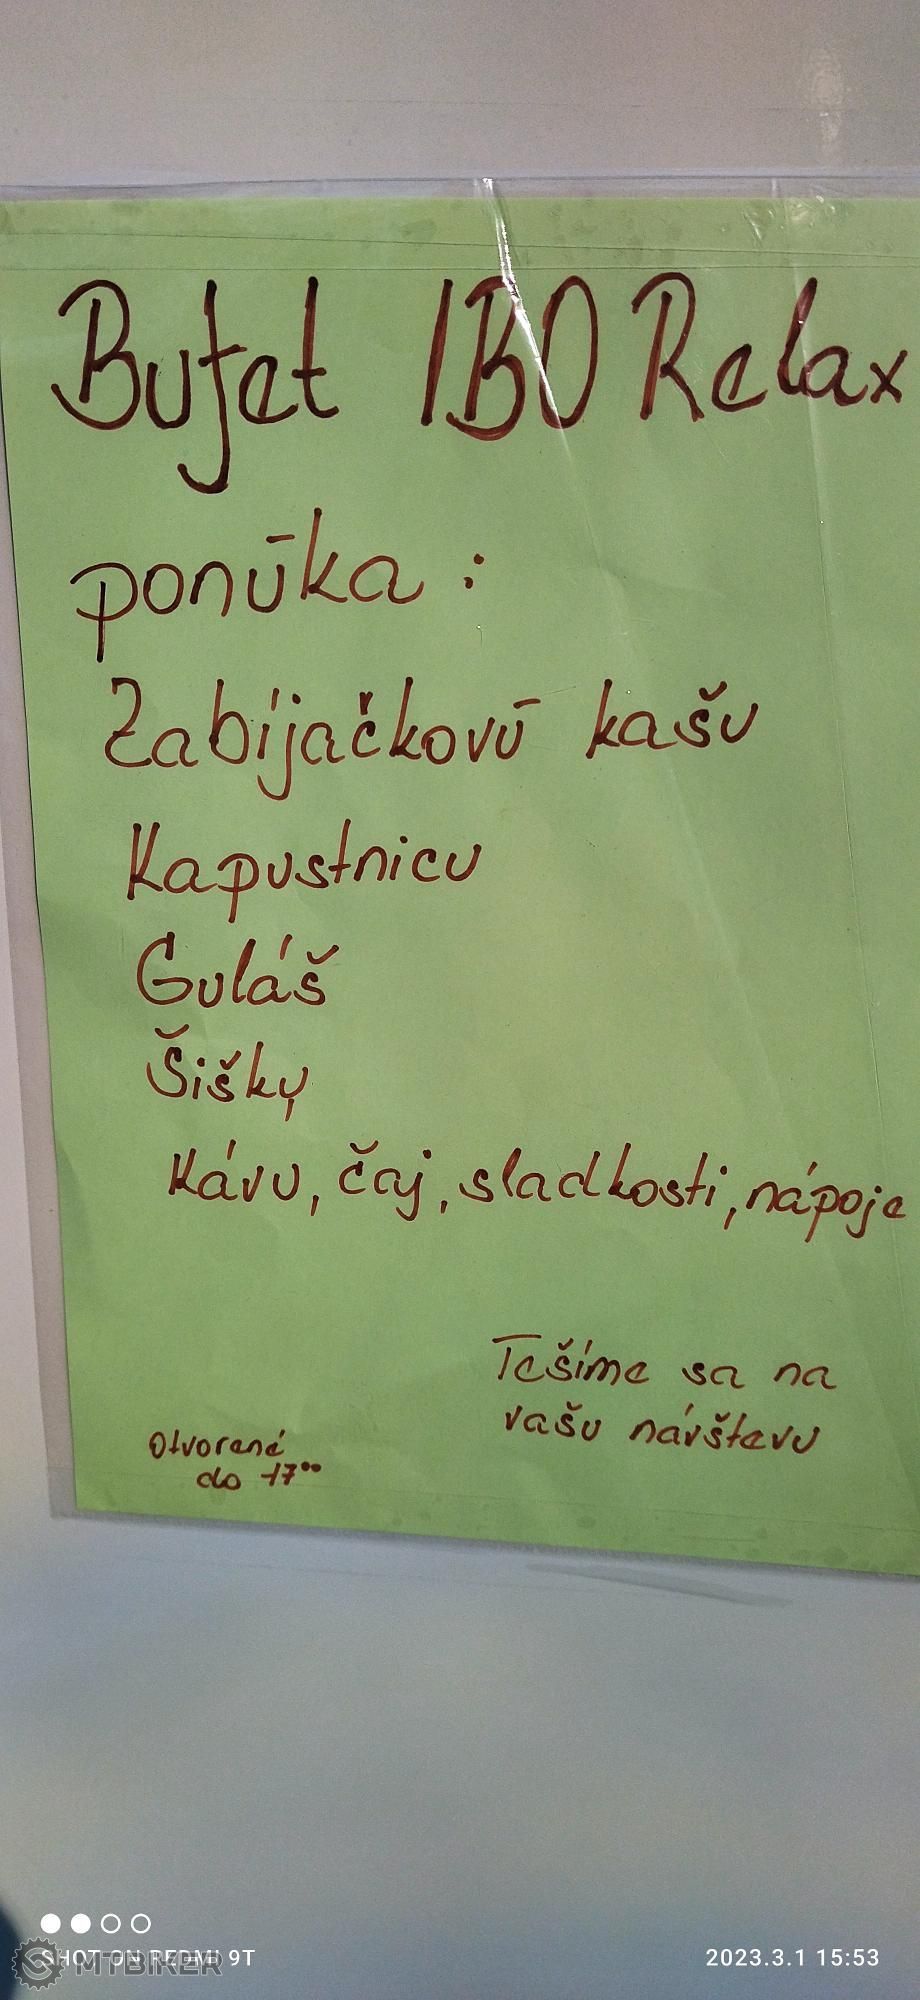 Bufet IBO Relax
ponúka :
Zabíjačkovú kašu
Kapustnicu
Guláš
Šišky
Kávu, čaj, sladkosti, nápoje
Tešíme sa na
vašu návštevu
Otvorené
do 17⁰⁰
SHOT ON REDMI 9T
MTBIKER
2023.3.1 15:53